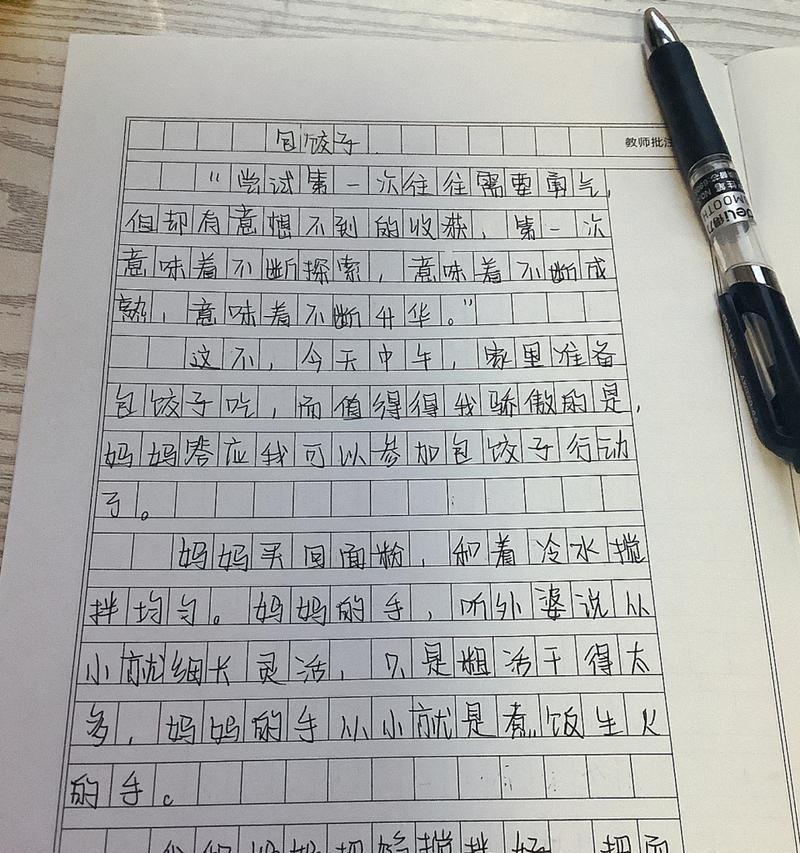 包饺子
教师批注
“尝试第一次往往需要勇气，
但却有意想不到的收获，第一次
意味着不断探索，意味着不断成
熟，意味着不断升华。”
这不，今天中午，家里准备
包饺子吃，而值得得我骄傲的是，
妈妈答应我可以参加包饺子行动
了。
妈妈买回面粉，和着冷水搅
拌均匀。妈妈的手，听外婆说从
小就细长灵活，只是粗活干得太
多，妈妈的手从小就是煮饭生火
的手。
妈妈把馅搅拌好，把面
deli得力